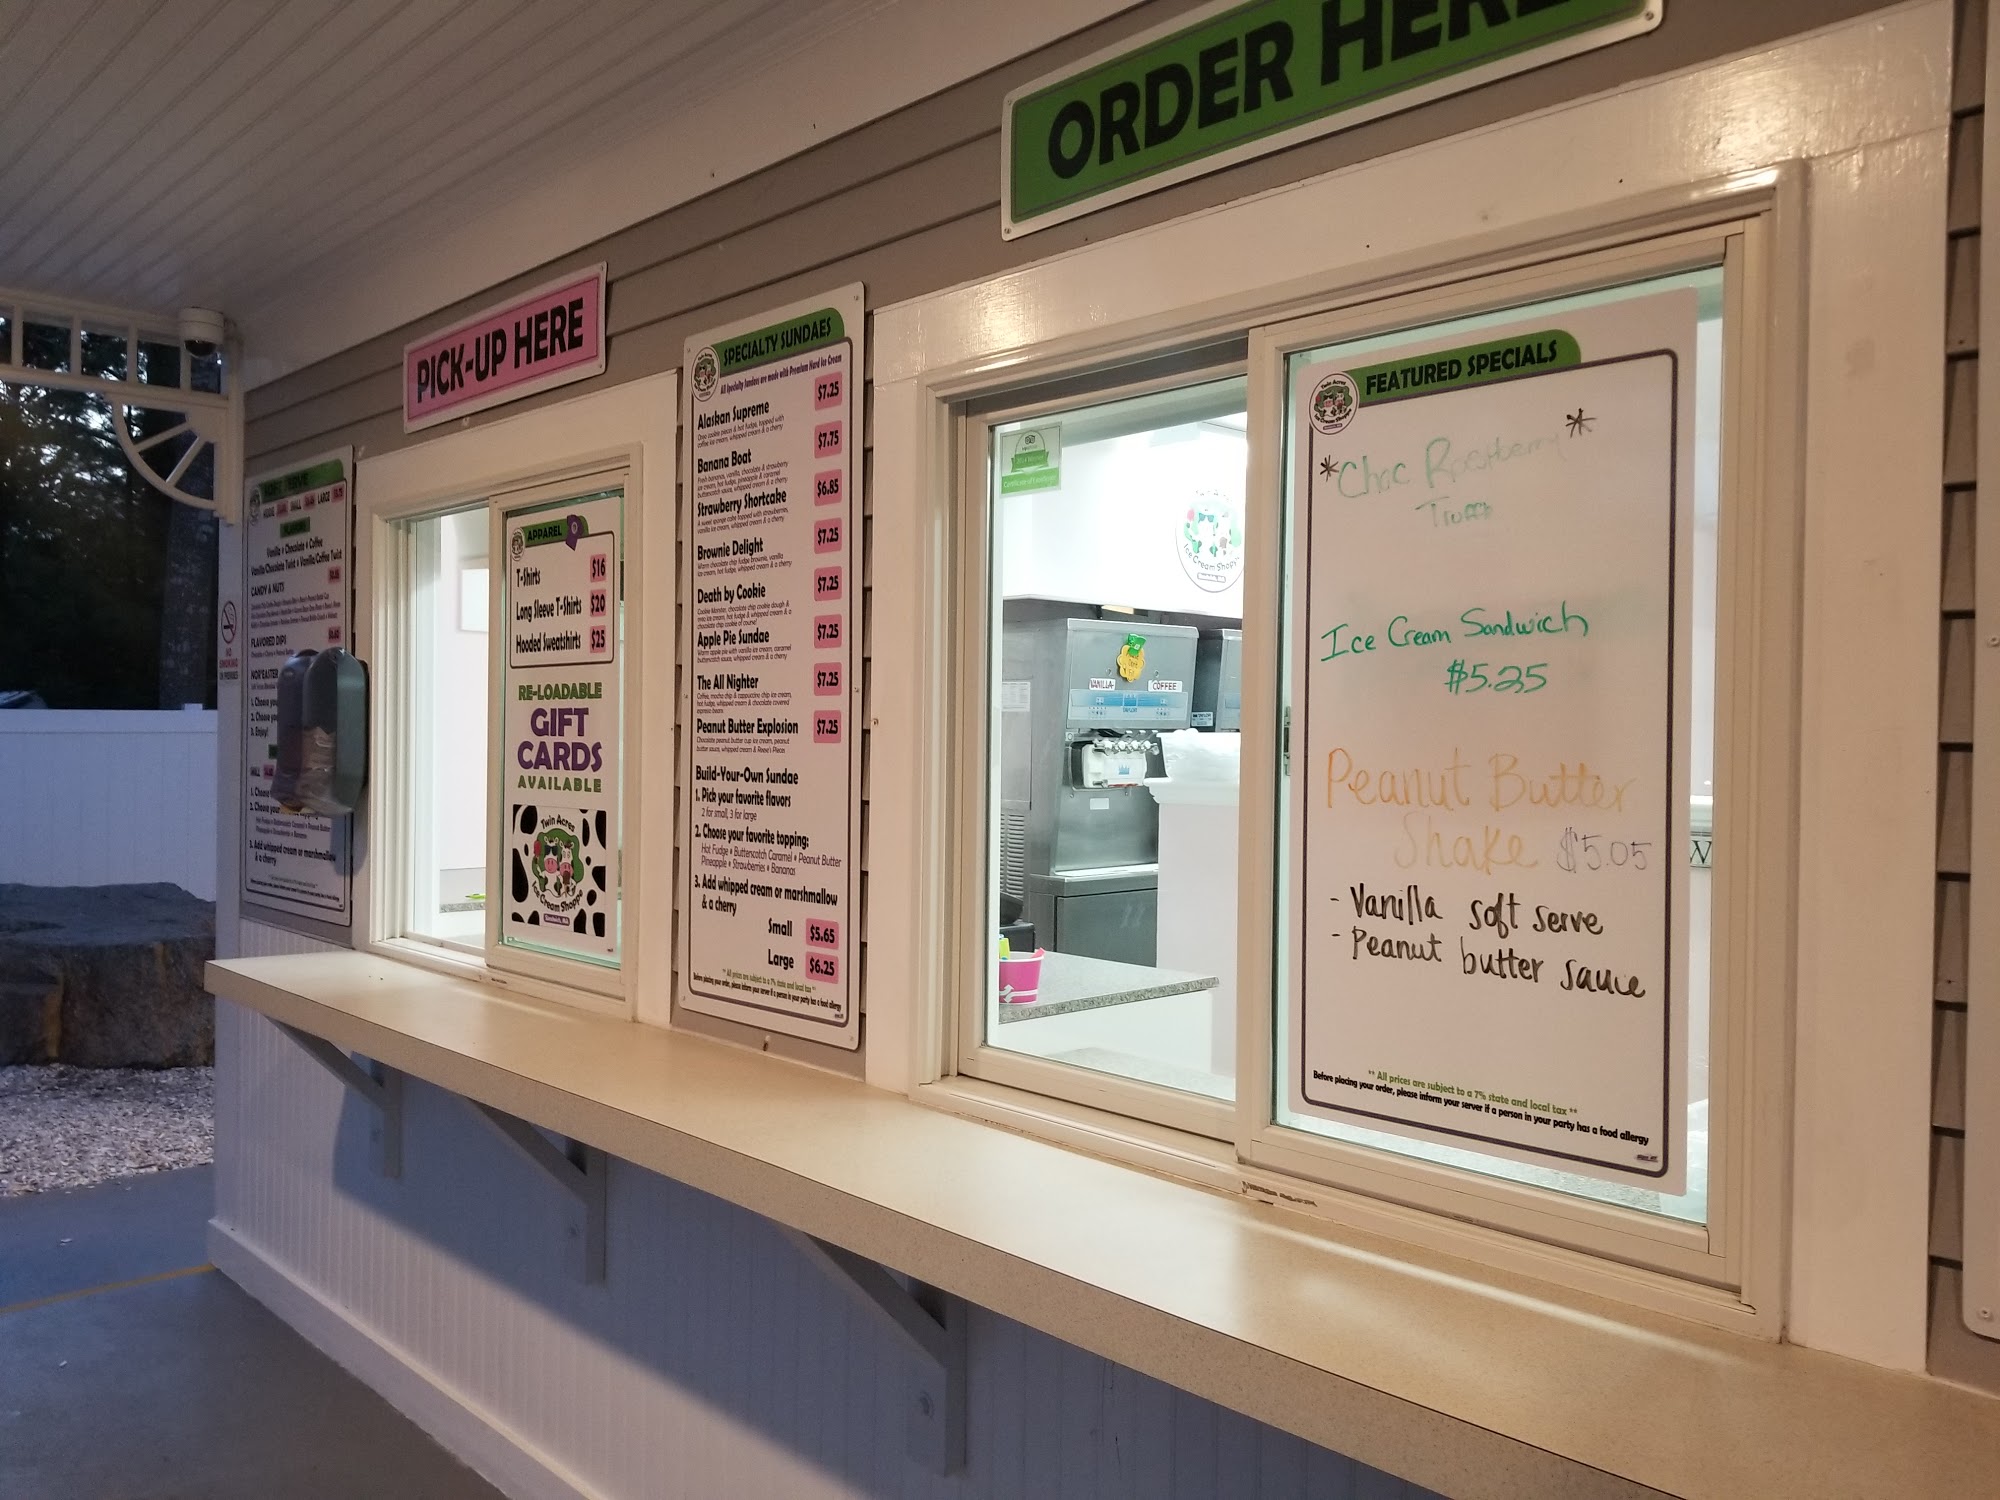 ORDER HERE
PICK-UP HERE
SOFT SERVE
LARGE
FLAVORS
Vanilla • Chocolate • Coffee
Vanilla/Chocolate Twist • Vanilla/Coffee Twist
CANDY & NUTS
FLAVORED DIPS
NOR'EASTER
1. Choose
2. Choose
3. Enjoy!
1. Choose
2. Choose your topping
3. Add whipped cream or marshmallow
& a cherry
NO
SMOKING
APPAREL
T-Shirts $16
Long Sleeve T-Shirts $20
Hooded Sweatshirts $25
RE-LOADABLE
GIFT
CARDS
AVAILABLE
Twin Acres
Ice Cream Shoppe
SPECIALTY SUNDAES
All Specialty Sundaes are made with Premium Hard Ice Cream
Alaskan Supreme $7.25
Oreo cookie pieces & hot fudge, topped with
coffee ice cream, whipped cream & a cherry
Banana Boat $7.75
Fresh bananas, vanilla, chocolate & strawberry
ice cream, hot fudge, pineapple & caramel
butterscotch sauce, whipped cream & a cherry
Strawberry Shortcake $6.85
A sweet sponge cake topped with strawberries,
vanilla ice cream, whipped cream & a cherry
Brownie Delight $7.25
Warm chocolate chip fudge brownie, vanilla
ice cream, hot fudge, whipped cream & a cherry
Death by Cookie $7.25
Cookie Monster, chocolate chip cookie dough &
oreo ice cream, hot fudge & whipped cream & a
chocolate chip cookie of course!
Apple Pie Sundae $7.25
Warm apple pie with vanilla ice cream, caramel
butterscotch sauce, whipped cream & a cherry
The All Nighter $7.25
Coffee, mocha chip & cappuccino chip ice cream,
hot fudge, whipped cream & chocolate covered
espresso beans
Peanut Butter Explosion $7.25
Chocolate peanut butter cup ice cream, peanut
butter sauce, whipped cream & Reese's Pieces
Build-Your-Own Sundae
1. Pick your favorite flavors
2 for small, 3 for large
2. Choose your favorite topping:
Hot Fudge • Butterscotch Caramel • Peanut Butter
Pineapple • Strawberries • Bananas
3. Add whipped cream or marshmallow
& a cherry
Small $5.65
Large $6.25
** All prices are subject to a 7% state and local tax **
Before placing your order, please inform your server if a person in your party has a food allergy
Certificate of Excellence
Ice Cream Shoppe
VANILLA
COFFEE
TAYLOR
Twin Acres
Ice Cream Shoppe
FEATURED SPECIALS
*Choc Raspberry*
Truffle
Ice Cream Sandwich
$5.25
Peanut Butter
Shake $5.05
- Vanilla soft serve
- Peanut butter sauce
** All prices are subject to a 7% state and local tax **
Before placing your order, please inform your server if a person in your party has a food allergy
W